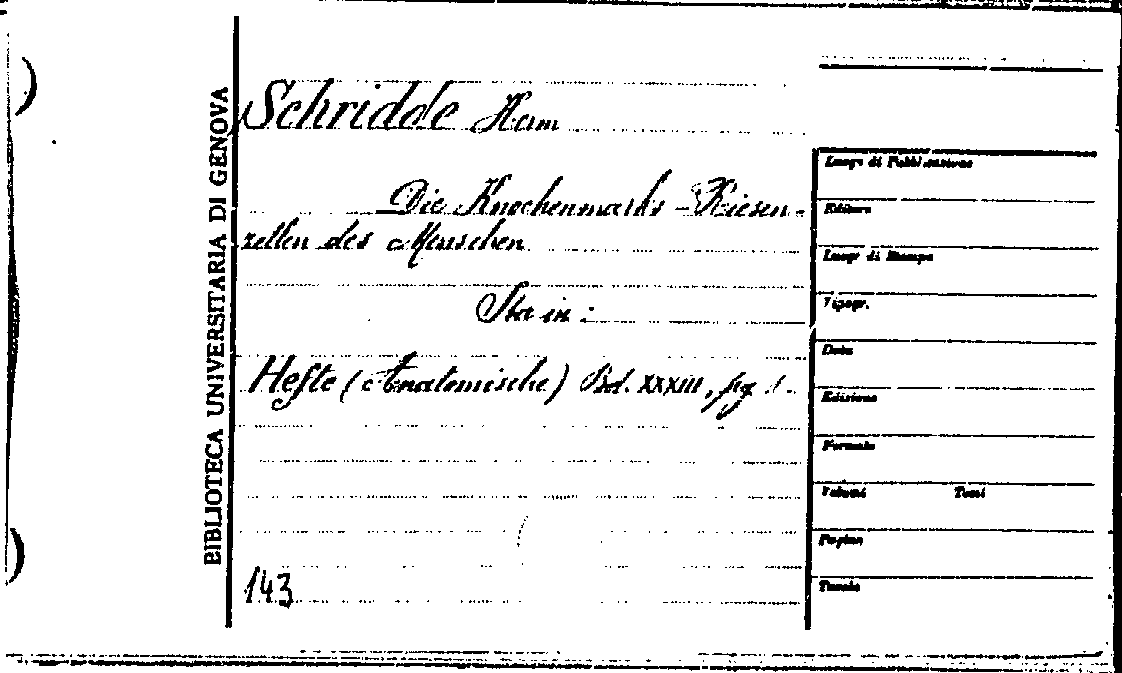 BIBLIOTECA UNIVERSITARIA DI GENOVA
Schridde Herm
Die Knochenmarks-Riesen-
zellen des Menschen
Sta in:
Hefte (Anatomische) Bd. XXXIII, pg 1.
143
Luogo di Pubblicazione
Editore
Luogo di Stampa
Tipogr.
Data
Edizione
Formato
Volumi Tomi
Pagine
Tavole